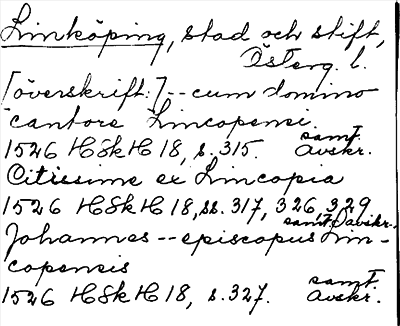 Linköping, stad och stift,
Österg. l.
[överskrift:] -- cum domino
cantore Lincopensi
1526 HSkH 18, s. 315. samt. avskr.
Citissime ex Lincopia
1526 HSkH 18, ss. 317, 326, 329
samt. avskr.
Johannes -- episcopus Lin-
copensis
1526 HSkH 18, s. 327. samt. avskr.